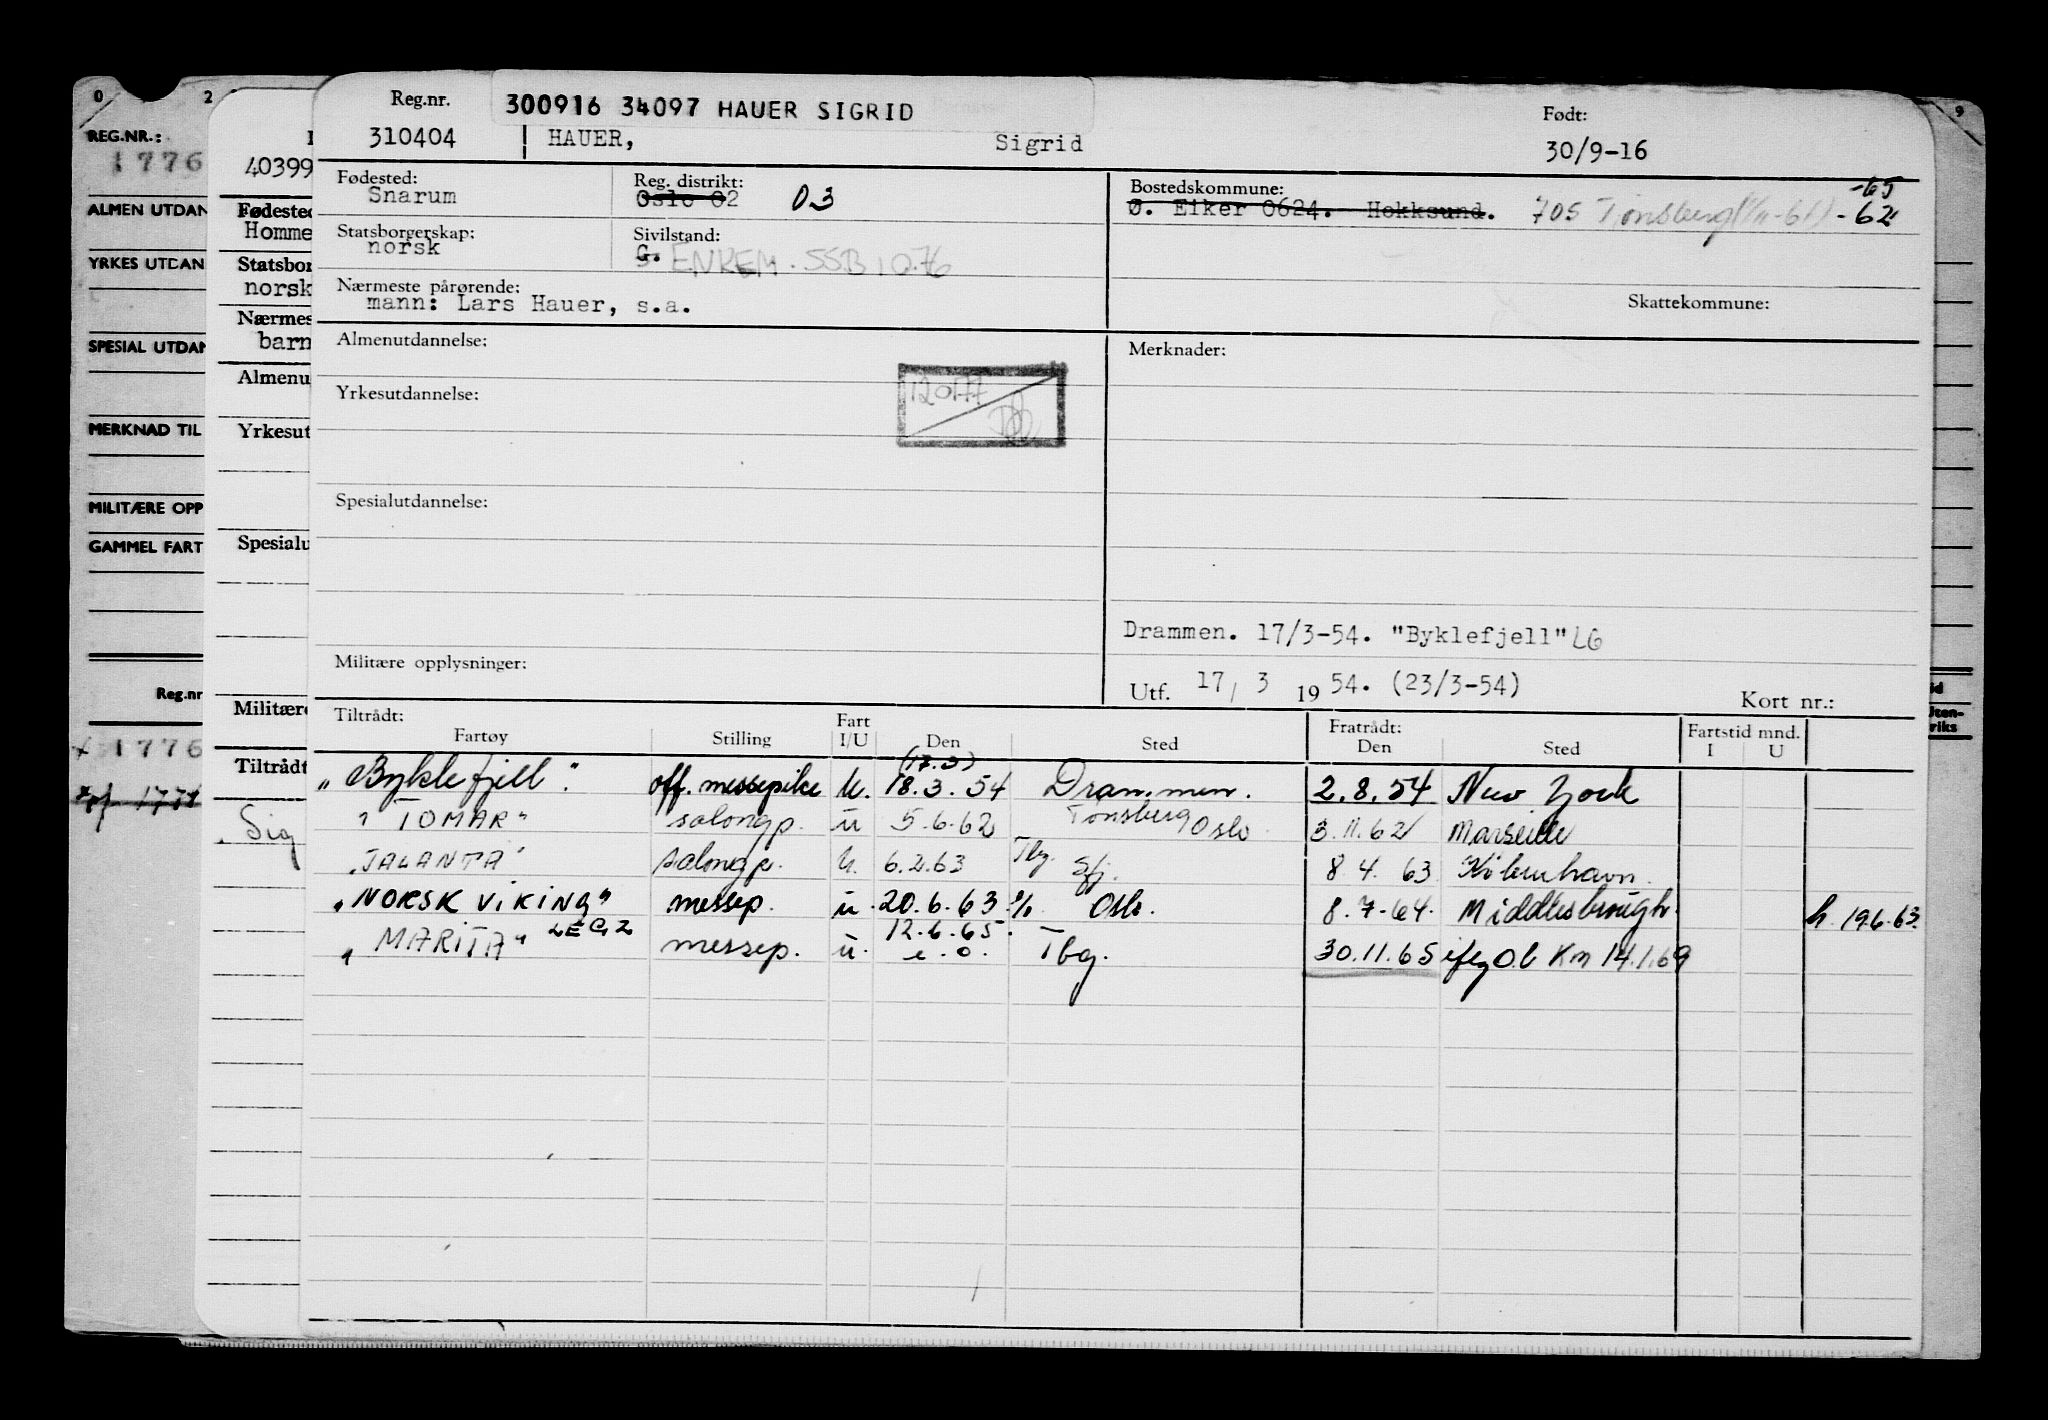 0 2 9
REG.NR.:
1776
ALMEN UTDAN
YRKES UTDAN
SPESIAL UTDAN
MERKNAD TIL
MILITÆRE OPP
GAMMEL FART
Reg.nr
1776
40399
Fødested
Homme
Statsbor
norsk
Nærmes
barn
Almenu
Yrkesut
Spesialu
Militære
Tiltrådt
Sig
Reg.nr. 300916 34097 HAUER SIGRID Født:
310404 HAUER, Sigrid 30/9-16
Fødested: Reg. distrikt: Bostedskommune: -65
Snarum Oslo 02 03 Ø. Eiker 0624. Hokksund. 705 Tønsberg -62
Statsborgerskap: Sivilstand:
norsk G. ENKEM. SSB 10.76
Nærmeste pårørende: Skattekommune:
mann: Lars Hauer, s.a.
Almenutdannelse: Merknader:
Yrkesutdannelse:
Spesialutdannelse:
Drammen. 17/3-54. "Byklefjell" LG
Militære opplysninger:
Utf. 17/ 3 1954. (23/3-54) Kort nr.:
Tiltrådt: Fart Fratrådt: Fartstid mnd.
Fartøy Stilling I/U Den Sted Den Sted I U
(17.3)
"Byklefjell". off. messepike U. 18.3.54 Drammen. 2.8.54 New York
"TOMAR" salongp. u 5.6.62 Tønsberg Oslo 3.11.62 Marseille
"JALANTA" salongp. U. 6.2.63 Tbg. Sfj. 8.4.63 København.
"NORSK VIKING" messep. u. 20.6.63 % Oslo. 8.7-64. Middlesbrough. h. 19.6.63.
"MARITA" LEGZ messep. u. 12.6.65. e.o. Tbg. 30.11.65 ifølg O.b Km 14.1.69